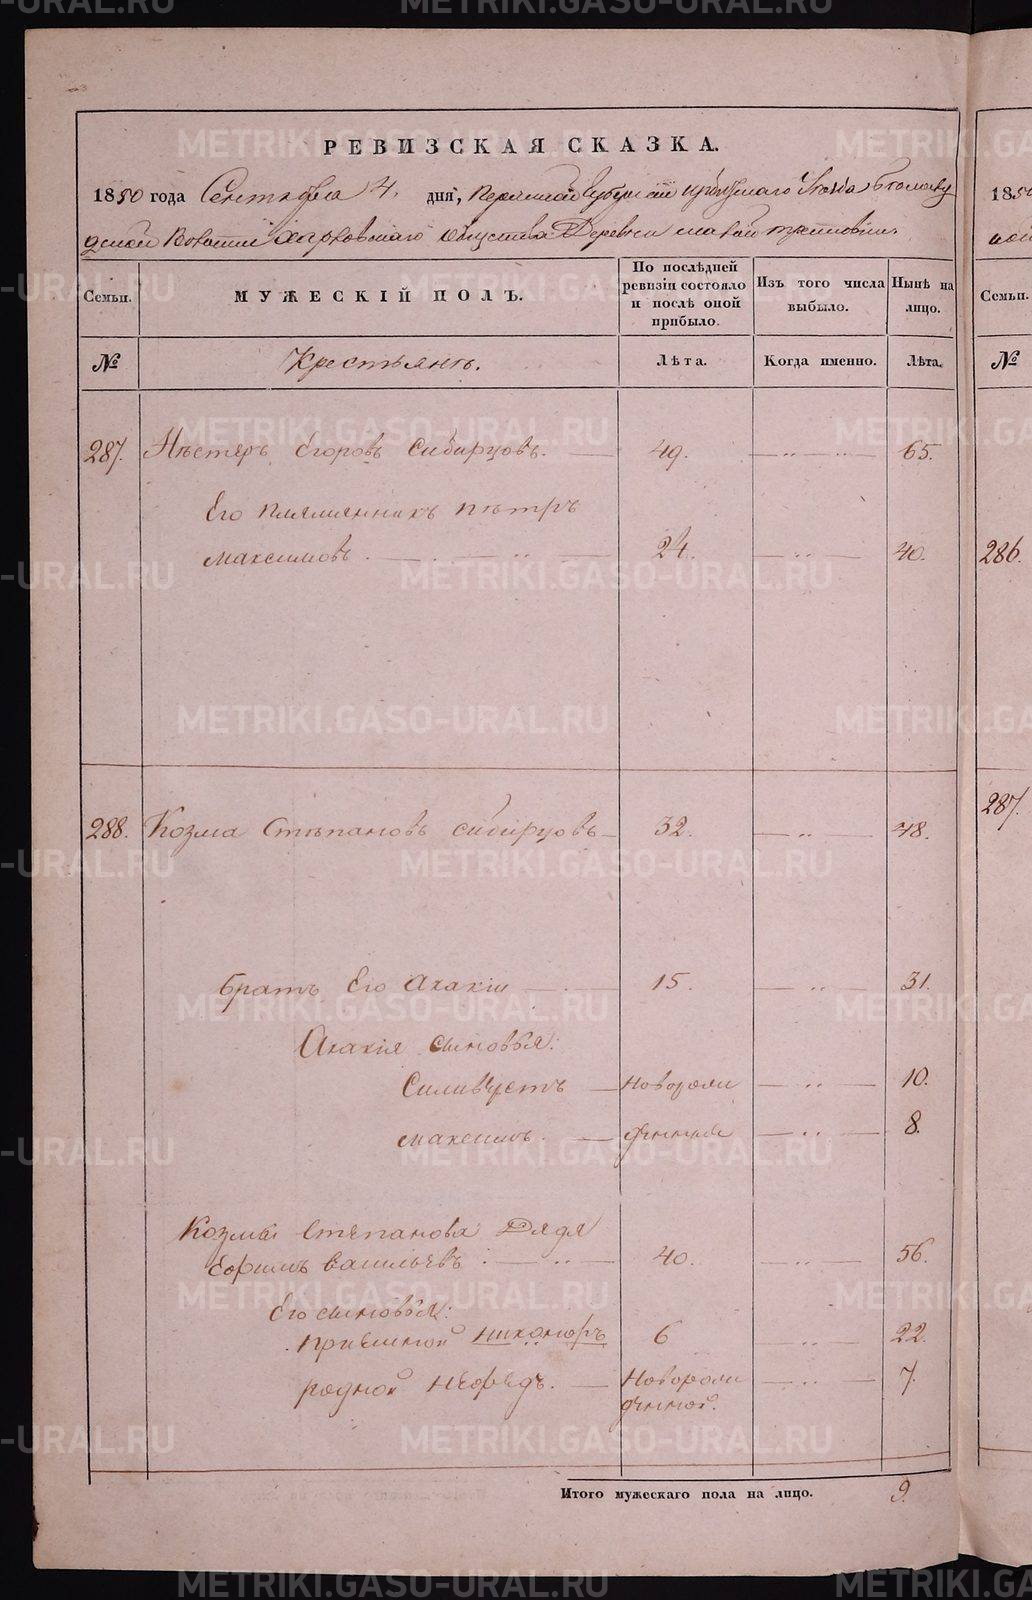 METRIKI.GASO-URAL.RU
РЕВИЗСКАЯ СКАЗКА.
1850 года Сентября 4. дня, Пермской Губернии Ирбитскаго Уезда
Волости Харловскаго общества Деревни
Семьи.
МУЖЕСКІЙ ПОЛЪ.
По послѣдней ревизіи состояло и послѣ оной прибыло.
Изъ того числа выбыло.
Нынѣ на лицо.
№
Крестьянъ.
Лѣта.
Когда именно.
Лѣта.
287. Нѣстеръ Егоровъ Сибирцовъ. 49. 65.
Его племянникъ пѣтръ
максимовъ. 24. 40.
288. Козма Стѣпановъ сибирцовъ 32. 48.
братъ Его Акакіи 15. 31.
Акакія сыновья:
Силивѣстъ Новорож 10.
максимъ. денныя 8.
Козмы Степанова Дядя
Ефимъ васильевъ 40. 56.
Его сыновья:
приемной никоноръ 6 22.
родной Неѳедъ. Новорож 7.
денной.
Итого мужескаго пола на лицо. 9.
185
Семьи.
№
286.
287.